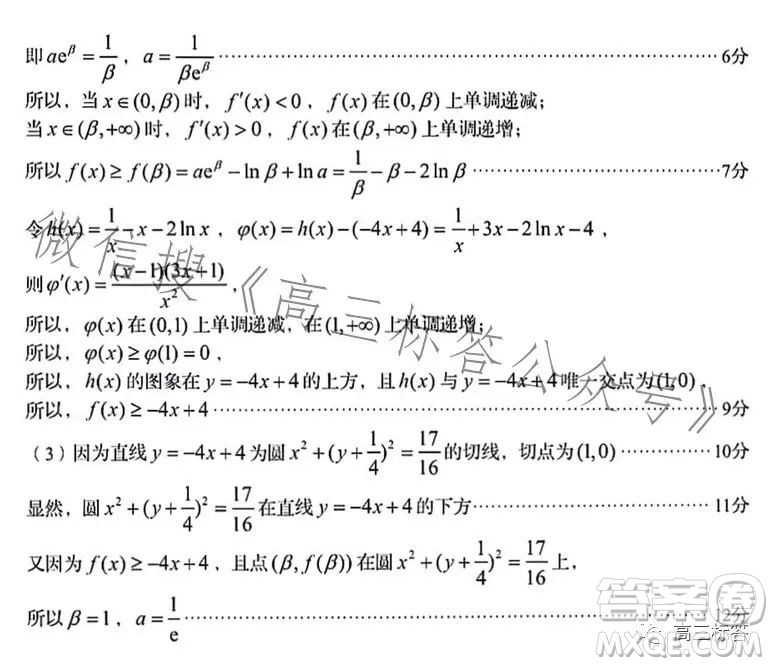 即 ae^β = 1/β , a = 1/(βe^β) ……………………………………… 6分
所以, 当 x∈(0,β) 时, f′(x)<0 , f(x) 在 (0,β) 上单调递减;
当 x∈(β,+∞) 时, f′(x)>0 , f(x) 在 (β,+∞) 上单调递增;
所以 f(x) ≥ f(β) = ae^β − ln β + ln a = 1/β − β − 2ln β ……………………… 7分
令 h(x) = 1/x − x − 2ln x , φ(x) = h(x) − (−4x+4) = 1/x + 3x − 2ln x − 4 ,
则 φ′(x) = (x−1)(3x+1)/x² ,
所以, φ(x) 在 (0,1) 上单调递减, 在 (1,+∞) 上单调递增;
所以, φ(x) ≥ φ(1) = 0 ,
所以, h(x) 的图象在 y = −4x+4 的上方, 且 h(x) 与 y = −4x+4 唯一交点为 (1,0) .
所以, f(x) ≥ −4x+4 ……………………………………… 9分
(3) 因为直线 y = −4x+4 为圆 x² + (y+1/4)² = 17/16 的切线, 切点为 (1,0) …………… 10分
显然, 圆 x² + (y+1/4)² = 17/16 在直线 y = −4x+4 的下方 ……………………… 11分
又因为 f(x) ≥ −4x+4 , 且点 (β, f(β)) 在圆 x² + (y+1/4)² = 17/16 上,
所以 β = 1 , a = 1/e ……………………………………… 12分
微信搜《高三标答公众号》
答案卷
高三标答
MXQE.COM